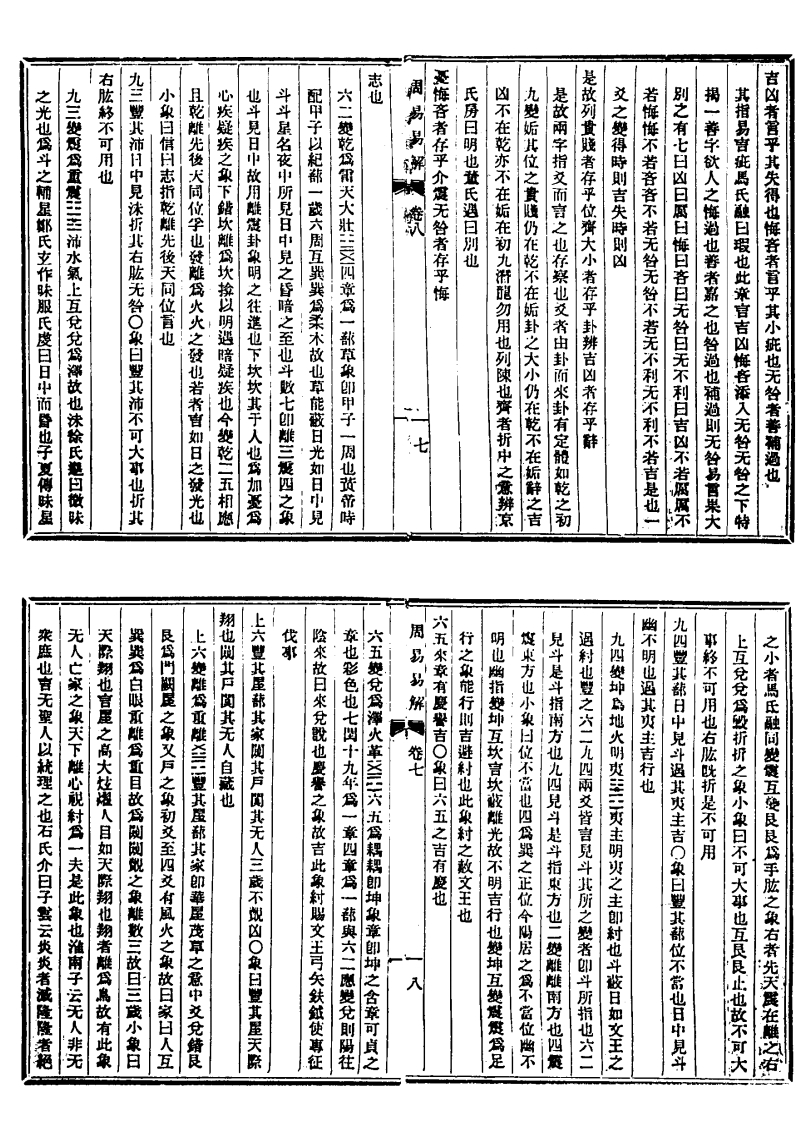 吉凶者言乎其失得也悔吝者言乎其小疵也无咎者善補過也
其指易言疵馬氏融曰瑕也此章官吉凶悔吝添入无咎无咎之下特
揭一善字欲人之悔過也善者嘉之也咎過也補過則无咎易言果大
別之有七曰凶曰厲曰悔曰吝曰无咎曰无不利曰吉凶不若厲厲不
若悔悔不若吝吝不若无咎无咎不若无不利无不利不若吉是也一
爻之變得時則吉失時則凶
是故列貴賤者存乎位齊大小者存乎卦辨吉凶者存乎辭
是故兩字指爻而言之也存察也爻者由卦而來卦有定體如乾之初
九變姤其位之貴賤仍在乾不在姤卦之大小仍在乾不在姤辭之吉
凶不在乾亦不在姤在初九潛龍勿用也列陳也齊者折中之意辨京
氏房曰明也董氏遇曰別也
憂悔吝者存乎介震无咎者存乎悔
周易易解
卷八
一七
志也
六二變乾爲雷天大壯䷡四章爲一蔀草象卽甲子一周也黃帝時
配甲子以紀蔀一歲六周互巽巽爲柔木故也草能蔽日光如日中見
斗斗星名夜中所見日中見之昏暗之至也斗數七卽離三震四之象
也斗見日中故用離震卦象明之往進也下坎坎其于人也爲加憂爲
心疾疑疾之象下錯坎離爲坎揜以明遇暗疑疾也今變乾二五相應
且乾離先後天同位孚也發離爲火火之發也若者言如日之發光也
小象曰信曰志指乾離先後天同位言也
九三豐其沛日中見沬折其右肱无咎○象曰豐其沛不可大事也折其
右肱終不可用也
九三變震爲重震䷲沛水氣上互兌兌爲澤故也沬徐氏邈曰微昧
之光也爲斗之輔星鄭氏玄作昧服氏虔曰日中而昏也子夏傳昧星
之小者馬氏融同變震互變艮艮爲手肱之象右者先天震在離之右
上互兌兌爲毀折折之象小象曰不可大事也互艮艮止也故不可大
事終不可用也右肱旣折是不可用
九四豐其蔀日中見斗遇其夷主吉○象曰豐其蔀位不當也日中見斗
幽不明也遇其夷主吉行也
九四變坤爲地火明夷䷣夷主明夷之主卽紂也斗蔽日如文王之
遇紂也豐之六二九四兩爻皆言見斗其所之變者卽斗所指也六二
見斗是斗指南方也九四見斗是斗指東方也二變離離南方也四震
震東方也小象曰位不當也四爲巽之正位今陽居之爲不當位幽不
明也幽指變坤互坎言坎蔽離光故不明吉行也變坤互變震震爲足
行之象能行則吉避紂也此象紂之蔽文王也
六五來章有慶譽吉○象曰六五之吉有慶也
周易易解
卷七
一八
六五變兌爲澤火革䷰六五爲耦耦卽坤象章卽坤之含章可貞之
章也彩色也七閏十九年爲一章四章爲一蔀與六二應變兌則陽往
陰來故曰來兌說也慶譽之象故吉此象紂賜文王弓矢鈇鉞使專征
伐事
上六豐其屋蔀其家闚其戶闃其无人三歲不覿凶○象曰豐其屋天際
翔也闚其戶闃其无人自藏也
上六變離爲重離䷝豐其屋蔀其家卽華屋茂草之意中爻兌錯艮
艮爲門闕屋之象又戶之象初爻至四爻有風火之象故曰家曰人互
巽巽爲白眼重離爲重目故爲闚闚覿之象離數三故曰三歲小象曰
天際翔也言屋之高大炫燿人目如天際翔也翔者離爲鳥故有此象
无人亡家之象天下離心視紂爲一夫是此象也淮南子云无人非无
衆庶也言无聖人以統理之也石氏介曰子雲云炎炎者滅隆隆者絕